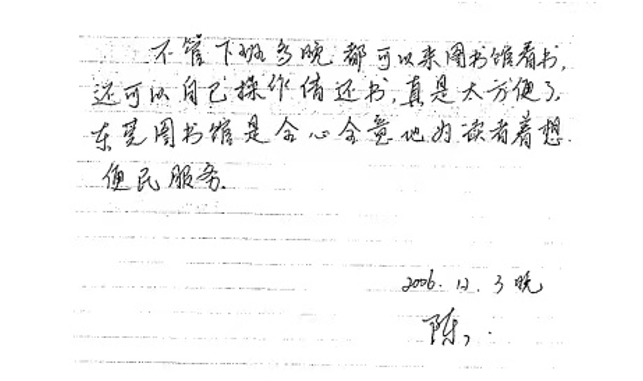 不管下班多晚都可以来图书馆看书，
还可以自己操作借还书，真是太方便了。
东莞图书馆是全心全意地为读者着想.
便民服务.
2006.12.3晚
陈，.